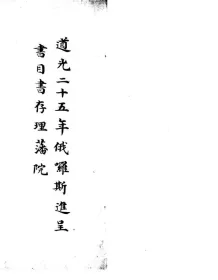 道光二十五年俄羅斯進呈
書目書存理藩院